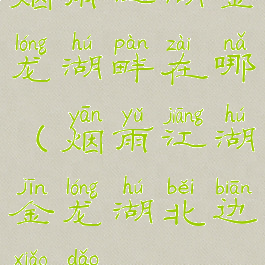 烟雨江湖金
lóng hú pàn zài nǎ
龙湖畔在哪
yān yǔ jiāng hú
(烟雨江湖
jīn lóng hú běi biān
金龙湖北边
xiǎo dǎo